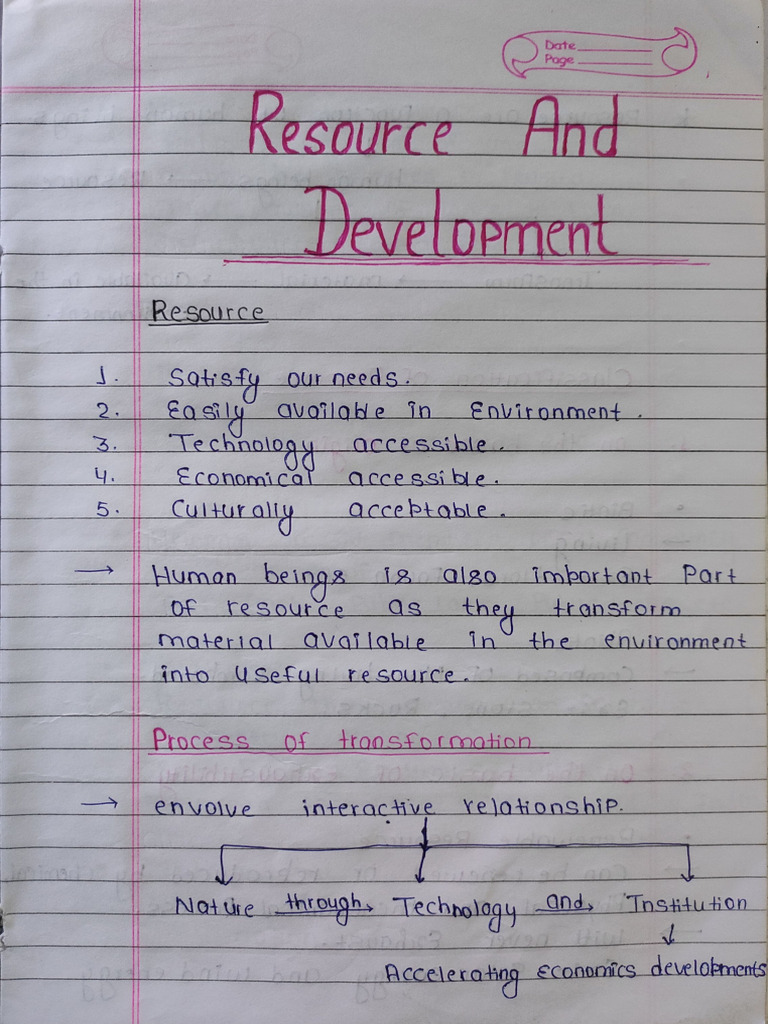 Date
Page
Resource And
Development
Resource
1. Satisfy our needs.
2. Easily available in Environment.
3. Technology accessible.
4. Economical accessible.
5. Culturally acceptable.
→ Human beings is also important part
of resource as they transform
material available in the environment
into useful resource.
Process of transformation
→ envolve interactive relationship.
Nature through→ Technology and→ Institution
↓
Accelerating economics developments